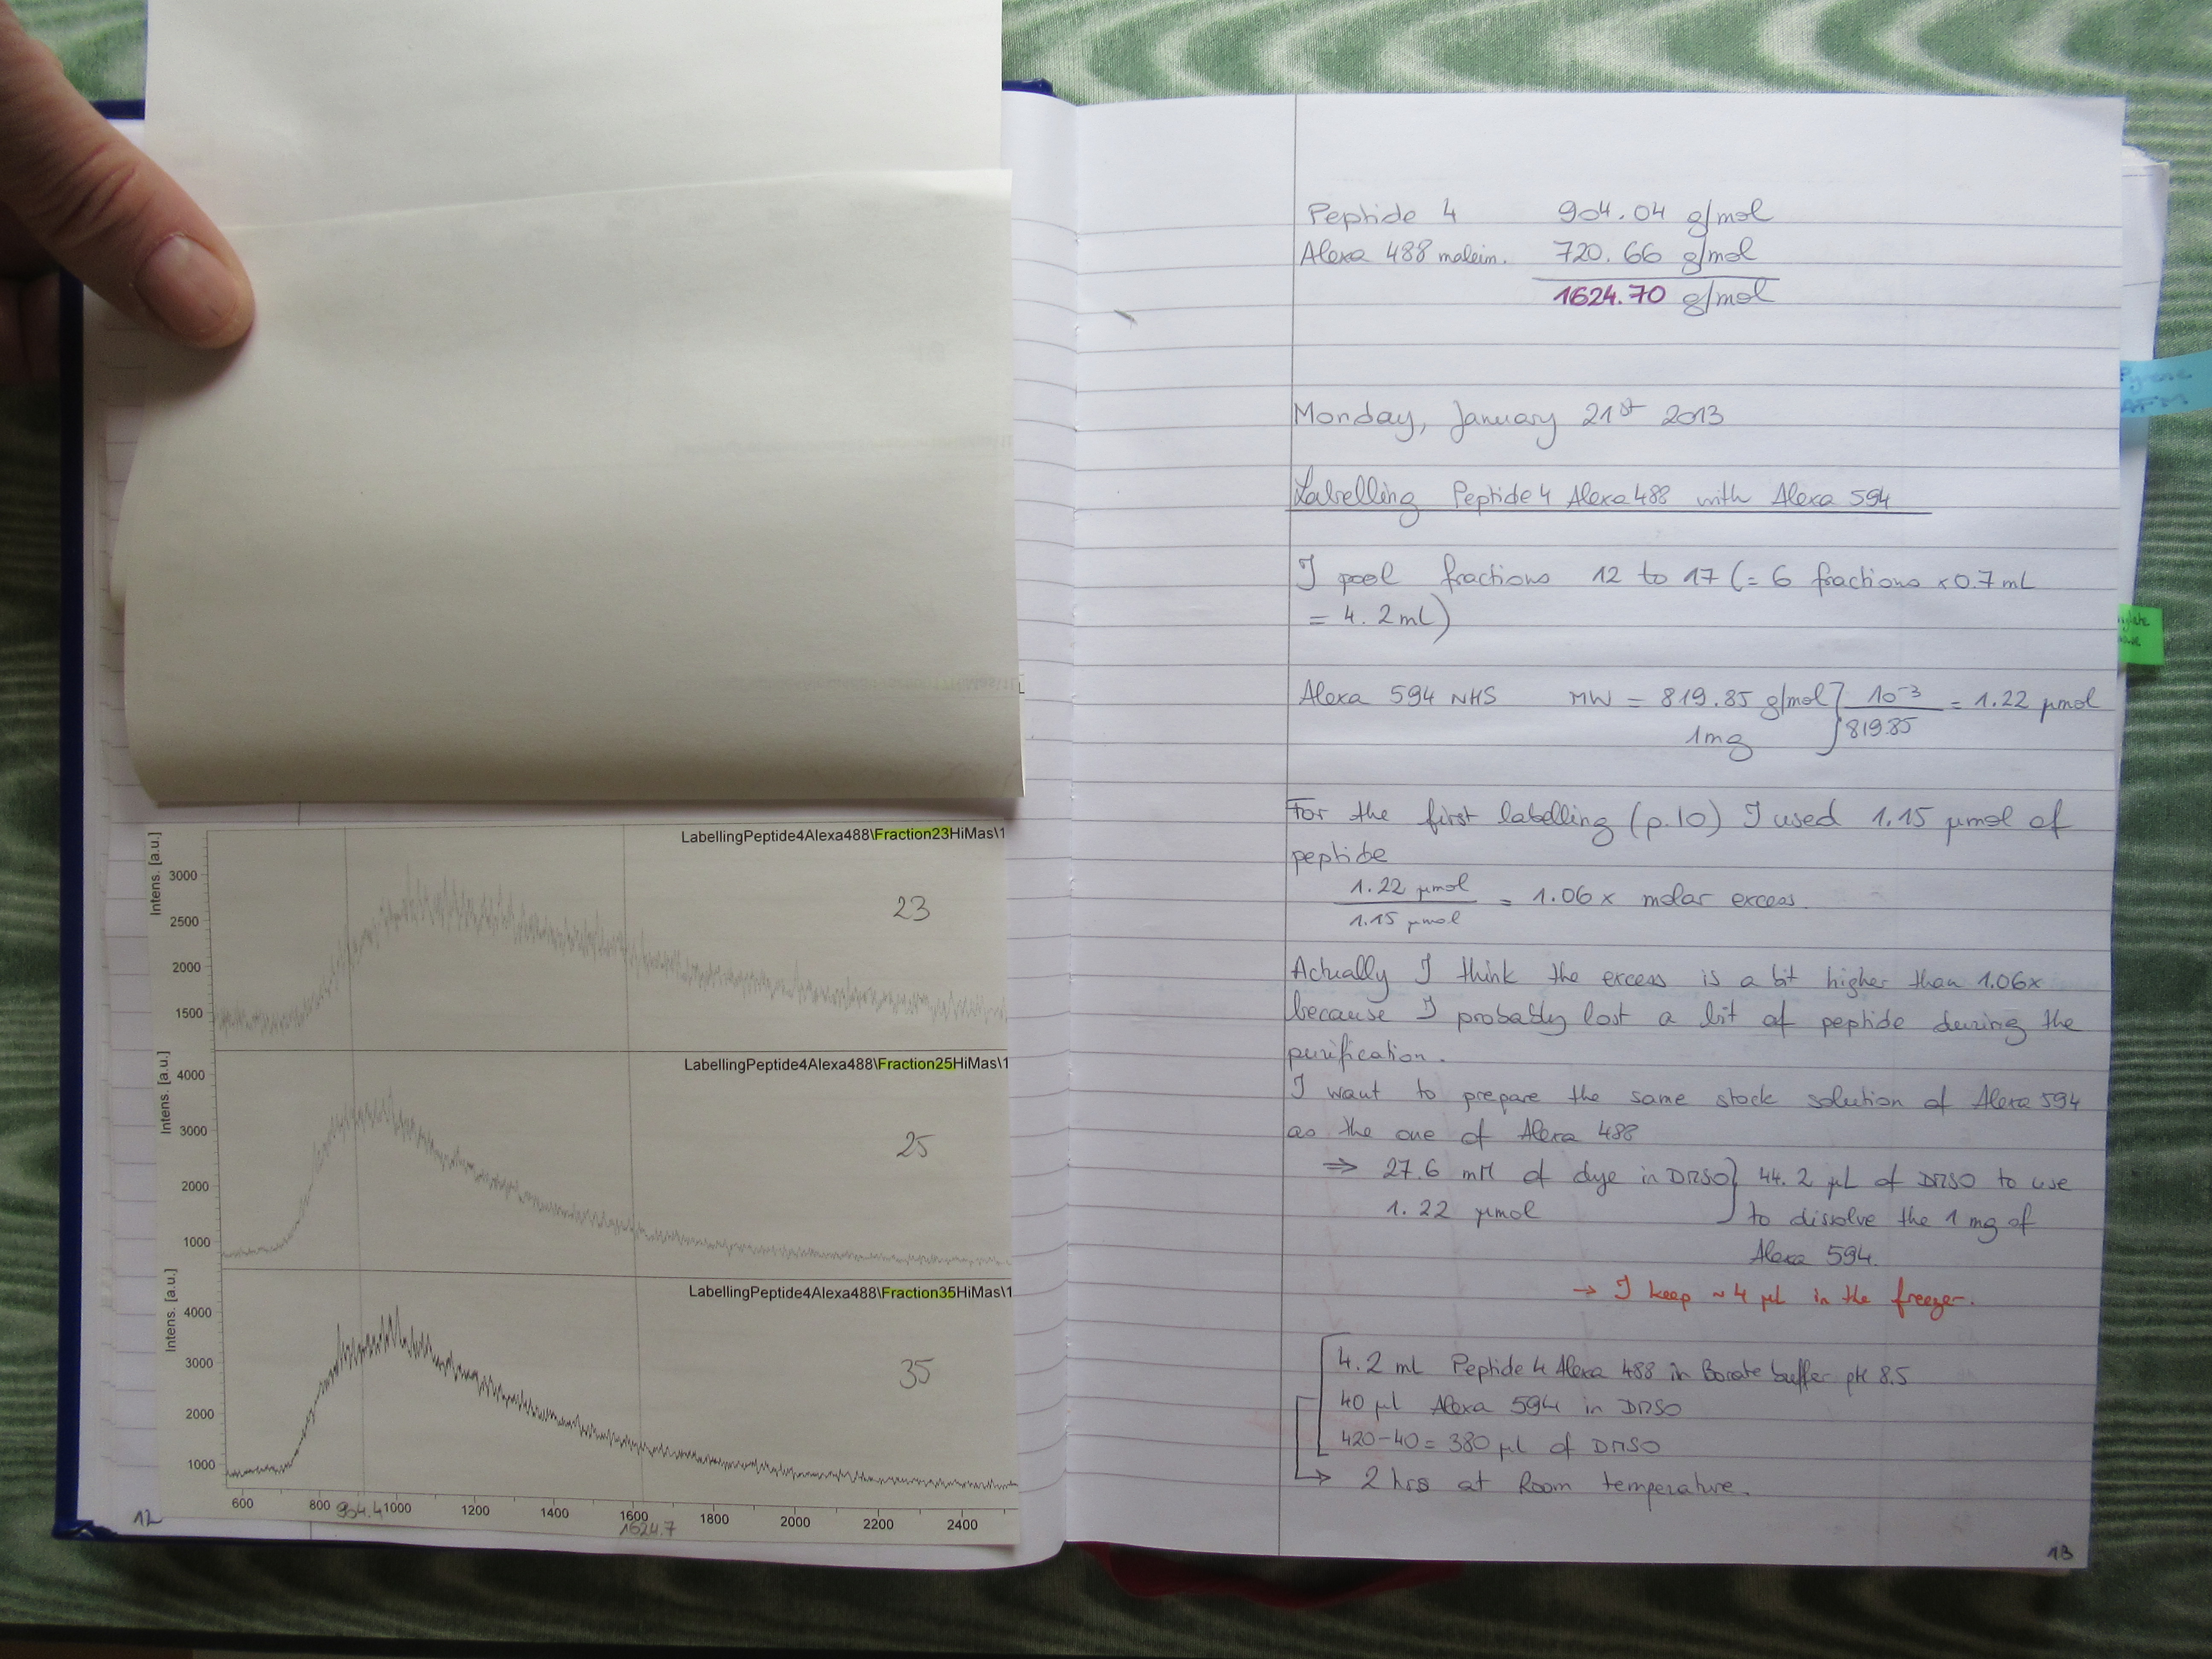 LabellingPeptide4Alexa488\Fraction23HiMas\1
Intens. [a.u.]
3000
2500
2000
1500
23
LabellingPeptide4Alexa488\Fraction25HiMas\1
Intens. [a.u.]
4000
3000
2000
1000
25
LabellingPeptide4Alexa488\Fraction35HiMas\1
Intens. [a.u.]
4000
3000
2000
1000
35
600 800 1000 1200 1400 1600 1800 2000 2200 2400
904.4 1624.7
12
Peptide 4 904.04 g/mol
Alexa 488 maleim. 720.66 g/mol
1624.70 g/mol
Monday, January 21st 2013
Labelling Peptide 4 Alexa 488 with Alexa 594
I pool fractions 12 to 17 (= 6 fractions x 0.7 mL
= 4.2 mL)
Alexa 594 NHS MW = 819.85 g/mol } 10-3 = 1.22 µmol
1mg 819.85
For the first labelling (p.10) I used 1.15 µmol of
peptide
1.22 µmol
= 1.06 x molar excess.
1.15 µmol
Actually I think the excess is a bit higher than 1.06x
because I probably lost a bit of peptide during the
purification.
I want to prepare the same stock solution of Alexa 594
as the one of Alexa 488
⇒ 27.6 mM of dye in DMSO } 44.2 µL of DMSO to use
1.22 µmol to dissolve the 1 mg of
Alexa 594.
→ I keep ~ 4 µL in the freezer.
4.2 ml Peptide 4 Alexa 488 in Borate buffer pH 8.5
40 µl Alexa 594 in DMSO
420-40 = 380 µl of DMSO
→ 2 hrs at Room temperature.
13
AFM